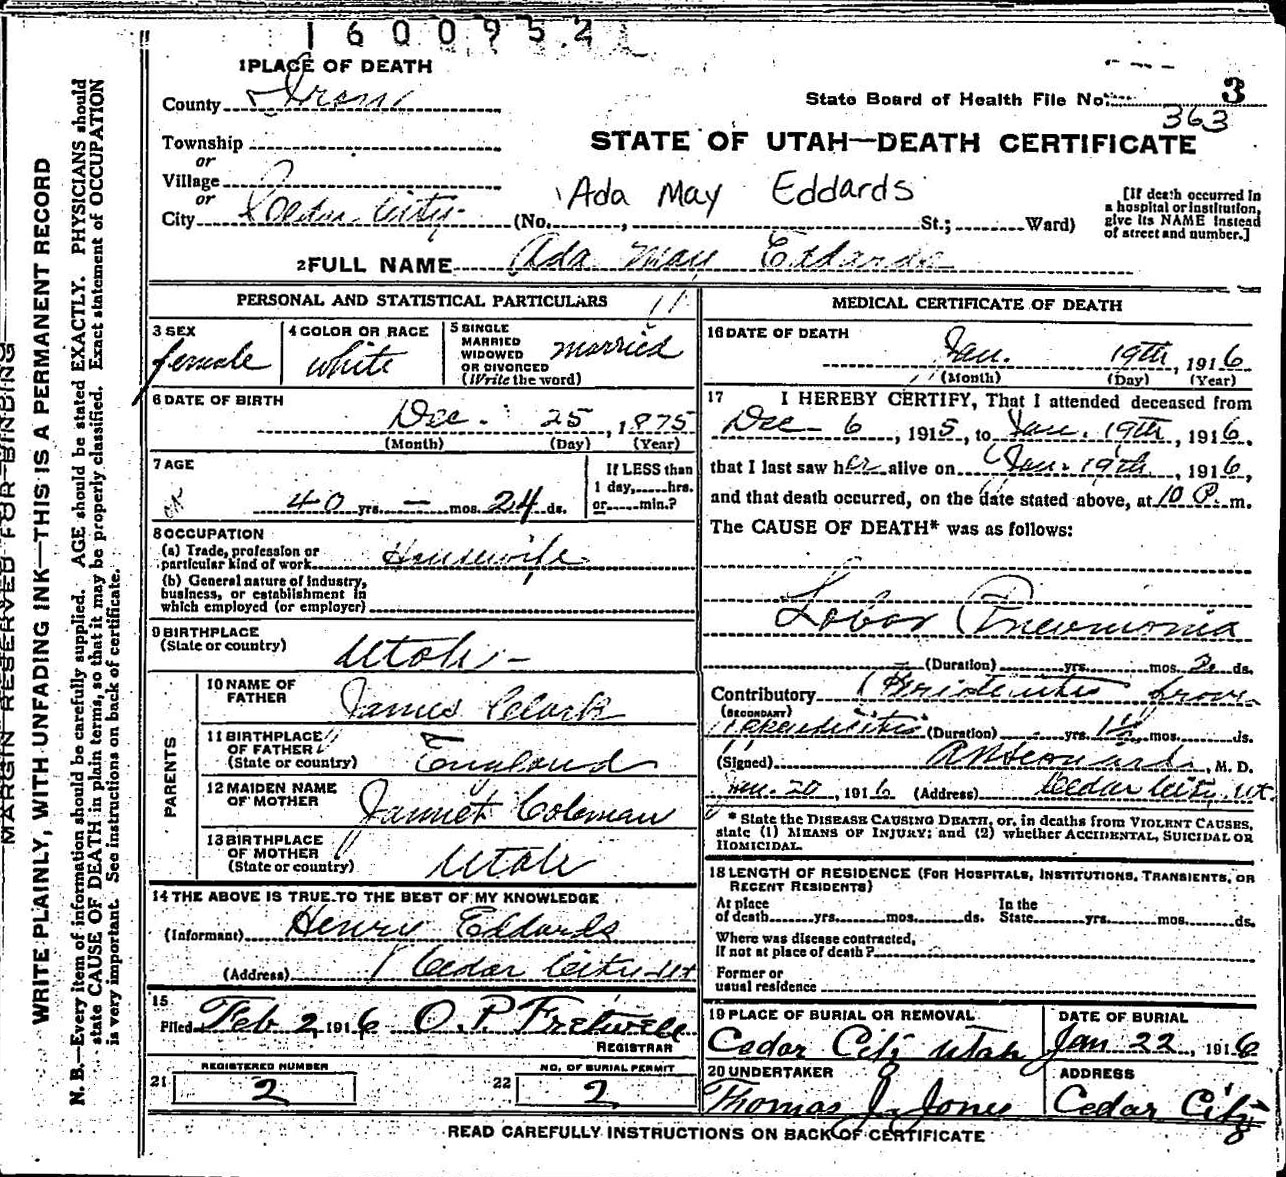 1600952
1 PLACE OF DEATH
County Iron
State Board of Health File No. 3
363
Township
or
Village
or
STATE OF UTAH—DEATH CERTIFICATE
Ada May Eddards
City Cedar City (No. , St.; Ward)
[If death occurred in
a hospital or institution,
give its NAME instead
of street and number.]
2 FULL NAME Ada May Eddards
PERSONAL AND STATISTICAL PARTICULARS
3 SEX
female
4 COLOR OR RACE
white
5 SINGLE
MARRIED
WIDOWED
OR DIVORCED
(Write the word)
married
6 DATE OF BIRTH
Dec. 25, 1875
(Month) (Day) (Year)
7 AGE
40 yrs. — mos. 24 ds.
If LESS than
1 day, hrs.
or min.?
8 OCCUPATION
(a) Trade, profession or
particular kind of work Housewife
(b) General nature of industry,
business, or establishment in
which employed (or employer)
9 BIRTHPLACE
(State or country)
Utah -
PARENTS
10 NAME OF
FATHER
James Clark
11 BIRTHPLACE
OF FATHER
(State or country)
England
12 MAIDEN NAME
OF MOTHER
Jannet Coleman
13 BIRTHPLACE
OF MOTHER
(State or country)
Utah
14 THE ABOVE IS TRUE TO THE BEST OF MY KNOWLEDGE
(Informant) Henry Eddards
(Address) Cedar City Ut
15
Filed Feb 2 1916 O. P. Fretwell
REGISTRAR
21 REGISTERED NUMBER
2
22 NO. OF BURIAL PERMIT
2
MEDICAL CERTIFICATE OF DEATH
16 DATE OF DEATH
Jan. 19th, 1916
(Month) (Day) (Year)
17 I HEREBY CERTIFY, That I attended deceased from
Dec - 6, 1915, to Jan. 19th, 1916.
that I last saw her alive on Jan. 19th, 1916,
and that death occurred, on the date stated above, at 10 P. m.
The CAUSE OF DEATH* was as follows:
Lobar Pneumonia
(Duration) yrs. mos. ds.
Contributory from
(SECONDARY)
Appendicitis (Duration) - yrs. 1½ mos. ds.
(Signed) , M. D.
Jan. 20, 1916 (Address) Cedar City, Ut
* State the DISEASE CAUSING DEATH, or, in deaths from VIOLENT CAUSES,
state (1) MEANS OF INJURY; and (2) whether ACCIDENTAL, SUICIDAL OR
HOMICIDAL.
18 LENGTH OF RESIDENCE (FOR HOSPITALS, INSTITUTIONS, TRANSIENTS, OR
RECENT RESIDENTS)
At place
of death yrs. mos. ds.
In the
State yrs. mos. ds.
Where was disease contracted,
if not at place of death?
Former or
usual residence
19 PLACE OF BURIAL OR REMOVAL
Cedar City Utah
DATE OF BURIAL
Jan 22, 1916
20 UNDERTAKER
Thomas J. Jones
ADDRESS
Cedar City
READ CAREFULLY INSTRUCTIONS ON BACK OF CERTIFICATE
MARGIN RESERVED FOR BINDING
WRITE PLAINLY, WITH UNFADING INK—THIS IS A PERMANENT RECORD
N. B.—Every item of information should be carefully supplied. AGE should be stated EXACTLY. PHYSICIANS should
state CAUSE OF DEATH in plain terms, so that it may be properly classified. Exact statement of OCCUPATION
is very important. See instructions on back of certificate.